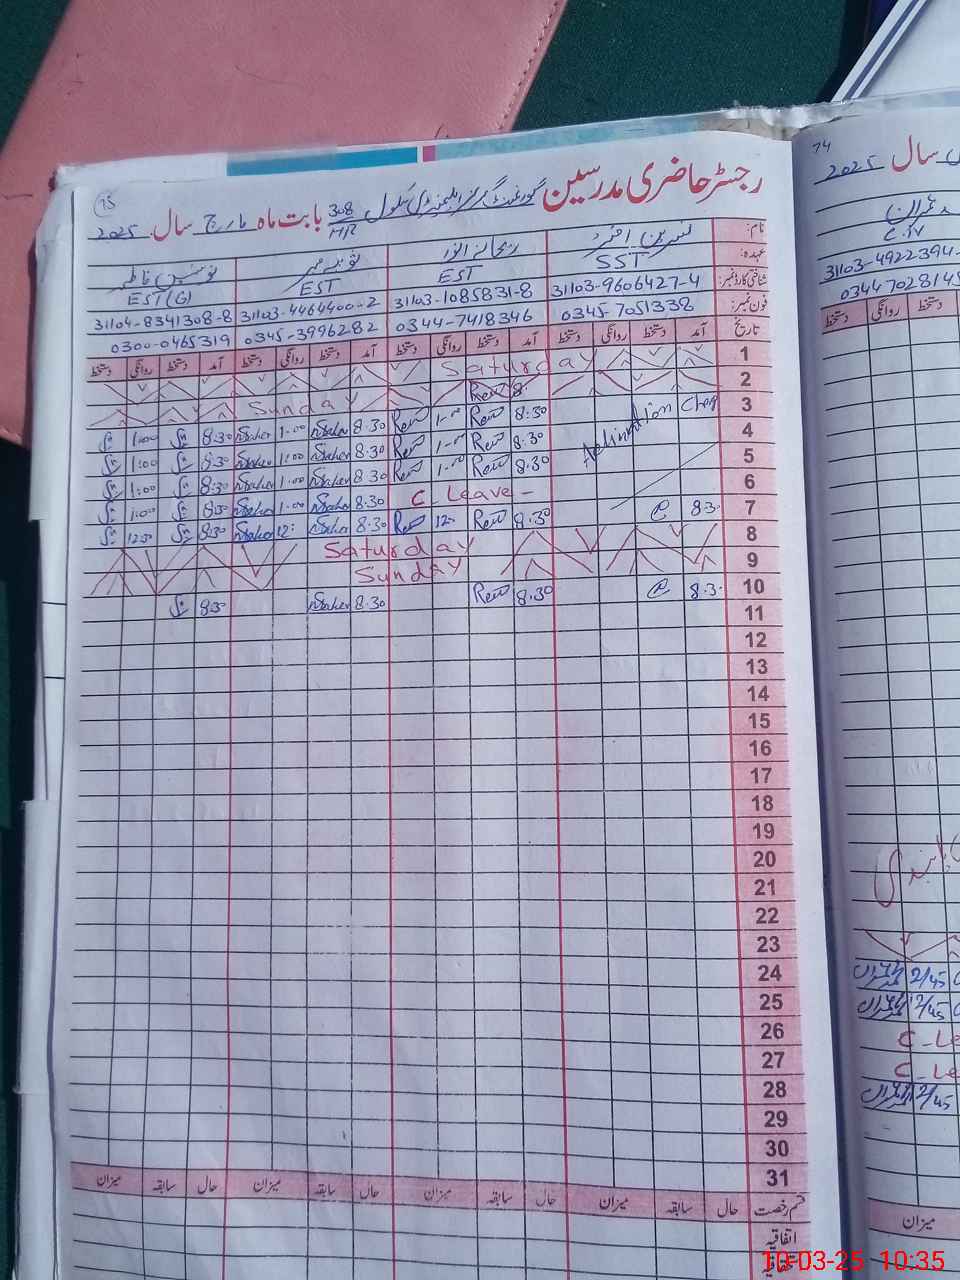 رجسٹر حاضری مدرسین گورنمنٹ گرلز ایلیمنٹری سکول 308/HR بابت ماہ مارچ سال 2025
75
74
سال 2025
نام:
نسرین اختر
ریحانہ انور
عہدہ:
SST
EST
EST
EST (G)
C.T.V
شناختی کارڈ نمبر:
31103-9606427-4
31103-1085831-8
31103-4464400-2
31104-8341308-8
31103-4922394-
فون نمبر:
0345-7051338
0344-7418346
0345-3996282
0300-0465319
03447028145
تاریخ آمد دستخط روانگی دستخط آمد دستخط روانگی دستخط آمد دستخط روانگی دستخط آمد دستخط روانگی دستخط
دستخط روانگی دستخط
1 Saturday
2 Sunday
3 8.30 1-00 8.30 1:00 8.30 1:00
4 8.30 1-00 8.30 1:00 8.30 1:00
5 8.30 1-00 8.30 1:00 8.30 1:00
6 C-Leave- 8.30 1-00 8.30 1:00
7 8.3 8.30 12 8.30 12: 8.30 12:30
8 Saturday
9 Sunday
10 8.3 8.30 8.30 8.30
11
12
13
14
15
16
17
18
19
20
21
22
23
24 12/45
25 12/45
26 C-Le
27 C-Le
28 12/45
29
30
31
قسم رخصت حال سابقہ میزان حال سابقہ میزان حال سابقہ میزان حال سابقہ میزان
میزان
اتفاقیہ
10-03-25 10:35